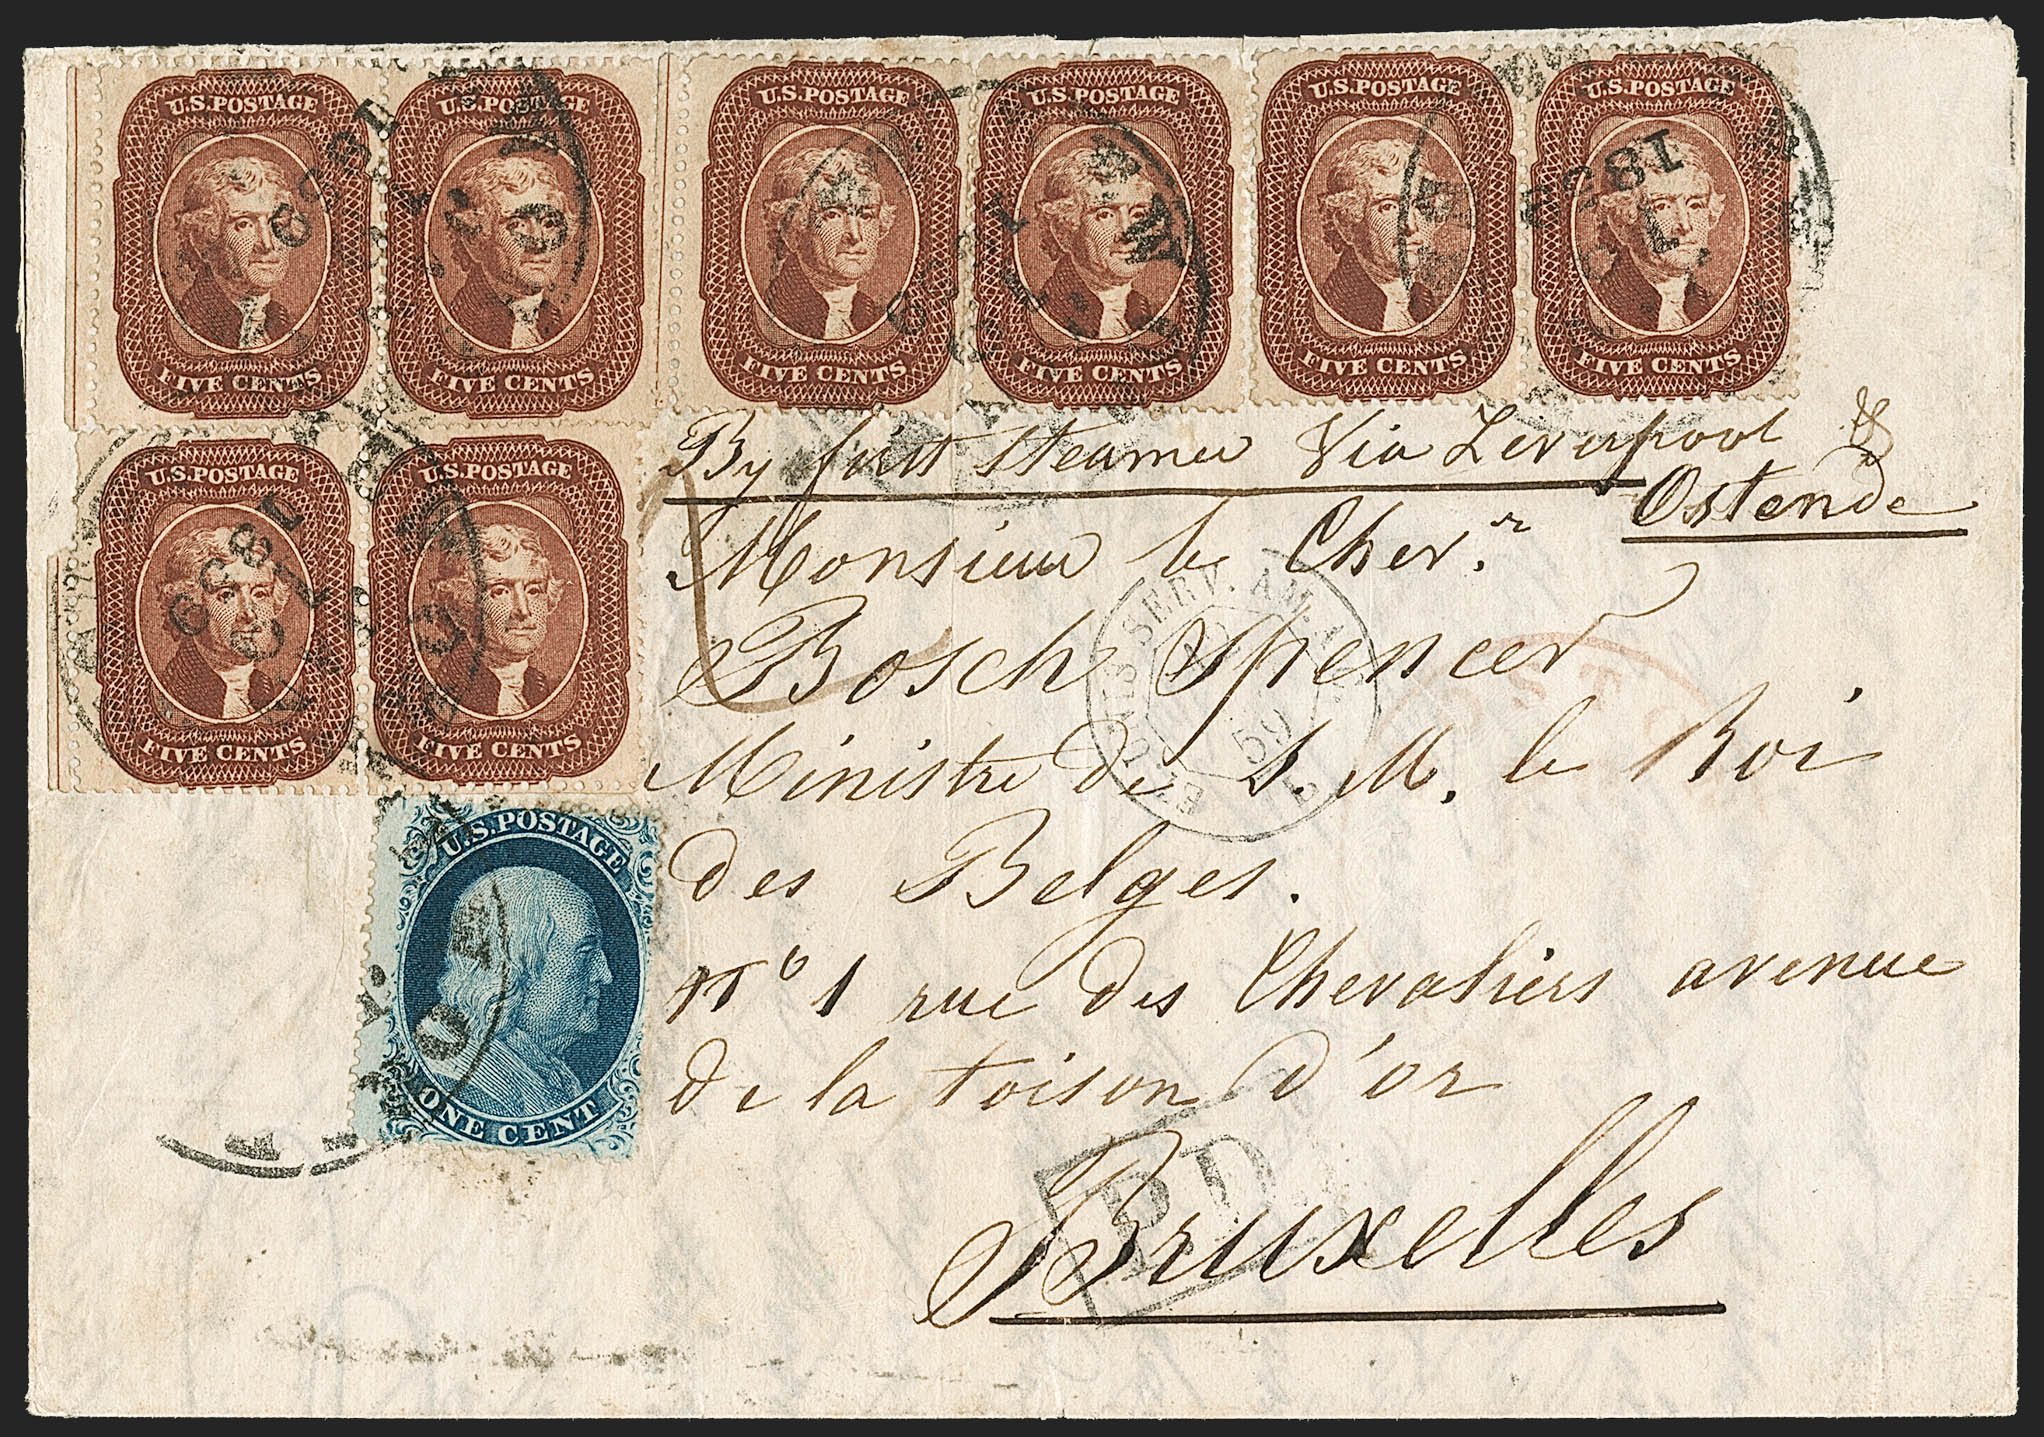 U.S.POSTAGE U.S.POSTAGE U.S.POSTAGE U.S.POSTAGE U.S.POSTAGE U.S.POSTAGE
1859 1859 1859
FIVE CENTS FIVE CENTS FIVE CENTS FIVE CENTS FIVE CENTS FIVE CENTS
By first steamer Via Leverpool &
Ostende
U.S.POSTAGE U.S.POSTAGE
1859
FIVE CENTS FIVE CENTS
Monsieur le Cher.
Bosch Spencer
Ministre de S. M. le Roi
des Belges.
N° 1 rue des Chevaliers avenue
de la toison d'or
Bruxelles
U.S.POSTAGE
ONE CENT
ETATS UNIS SERV. AM.
59
PD